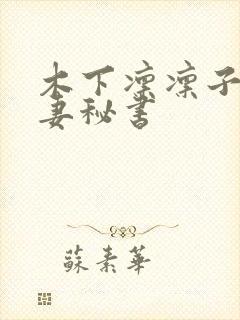 木下凛凛子
妻秘书
蘇素華